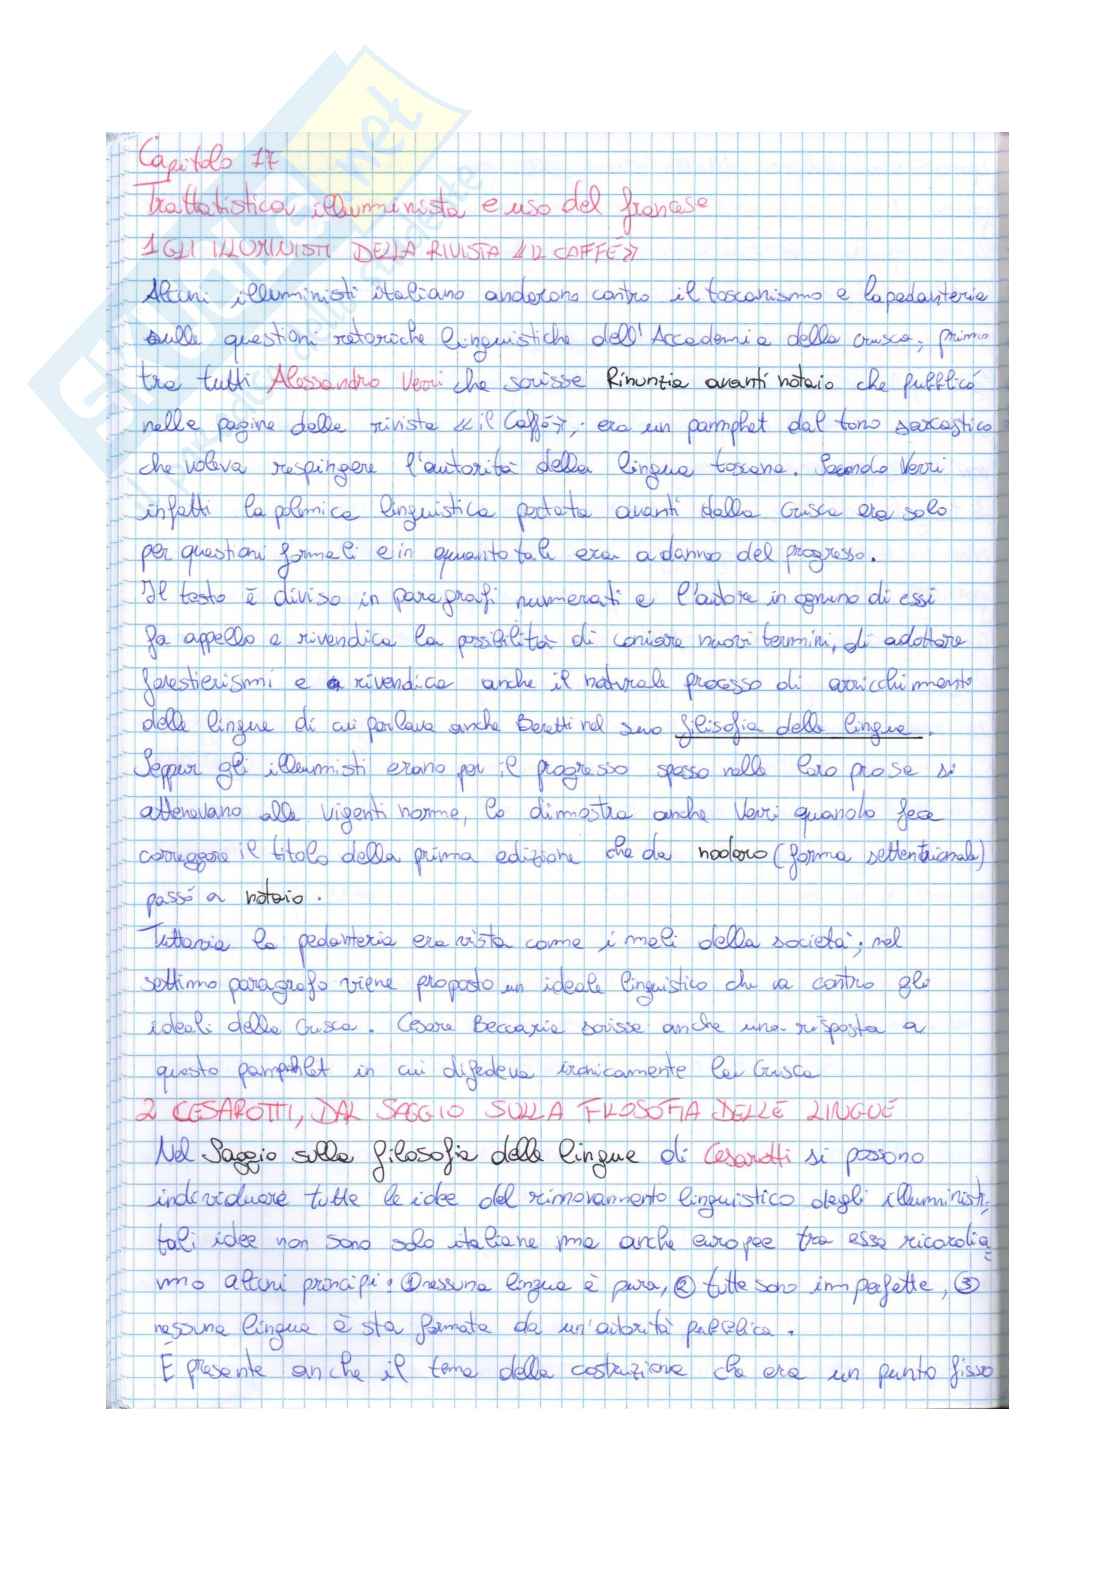 Capitolo 17
Trattatistica illuminista e uso del francese
1 GLI ILLUMINISTI DELLA RIVISTA «IL CAFFÈ»
Alcuni illuministi italiano andarono contro il toscanismo e la pedanteria
sulle questioni retoriche linguistiche dell'Accademia della crusca; primo
tra tutti Alessandro Verri che scrisse Rinunzia avanti notaio che pubblicò
nelle pagine della rivista «il Caffè»; era un pamphet dal tono sarcastico
che voleva respingere l'autorità della lingua toscana. Secondo Verri
infatti la polmica linguistica portata avanti dalla Crusca era solo
per questioni formali e in quanto tali era a danno del progresso.
Il testo è diviso in paragrafi numerati e l'autore in ognuno di essi
fa appello e rivendica la possibilità di coniare nuovi termini, di adottare
forestierismi e rivendica anche il naturale processo di arricchimento
delle lingue di cui parlava anche Baretti nel suo filisofia delle lingue.
Seppur gli illumisti erano per il progresso spesso nelle loro prose si
attenevano alle vigenti norme, lo dimostra anche Verri quando fece
correggere il titolo della prima edizione che da nodaro (forma settentrionale)
passò a notaio.
Tuttavia la pedanteria era vista come i mali della società; nel
settimo paragrafo viene proposto un ideale linguistico che va contro gli
ideali della Crusca. Cesare Beccaria scrisse anche una risposta a
questo pamphlet in cui difedeva ironicamente la Crusca
2 CESAROTTI, DAL SAGGIO SULLA FILOSOFIA DELLE LINGUE
Nel Saggio sulla filosofia delle lingue di Cesarotti si possono
individuare tutte le idee del rinnovamento linguistico degli illuministi,
tali idee non sono solo italiane ma anche europee tra esse ricordia=
mo alcuni principi: ① nessuna lingua è pura, ② tutte sono imperfette, ③
nessuna lingua è sta formata da un'autorità pubblica.
È presente anche il tema della costruzione che era un punto fisso
SKUOLA.net
il paradiso dello studente